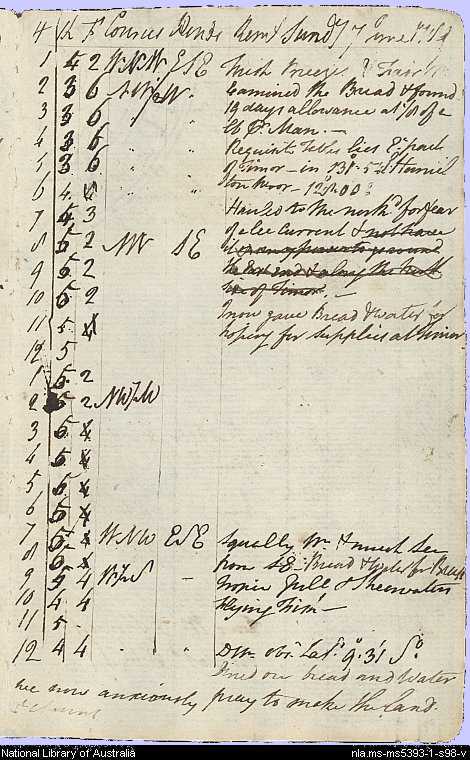 H K F Courses Winds Remks Sundy 7 June 1789
1 5 2 WNW ESE Fresh Breezes &
2 3 6 Examined the Bread & found
3 3 6 " " 19 days allowance at 1/8 of a
4 3 6 " " lb Pr Man. —
5 3 6 " " Requisite Tables lies Et part
of Timor — in
6 4 4 " "
7 4 3 Hauled to the northd for fear
8 5 2 NW SE of a lee Current & not have
9 5 2 the East end & along the North
10 5 2 side of Timor. —
11 5 4 I now gave Bread & water for
12 5 hoping for supplies at Timor
1 5 2
2 5 2 NWbW
3 5 4
4 5 4
5 5 4
6 5 4
7 5 4 WNW ESE Squally Wr. & much Sea
8 5 4 from SE — Bread & Water for Breakft
9 5 4 WbS — Tropic Gull & Sheerwaters
10 4 4 flying
11 5
12 4 4 " " Dtto obs. Latd 9°.31' So
Dined on bread and Water
we now anxiously pray to make the land.
National Library of Australia nla.ms-ms5393-1-s98-v